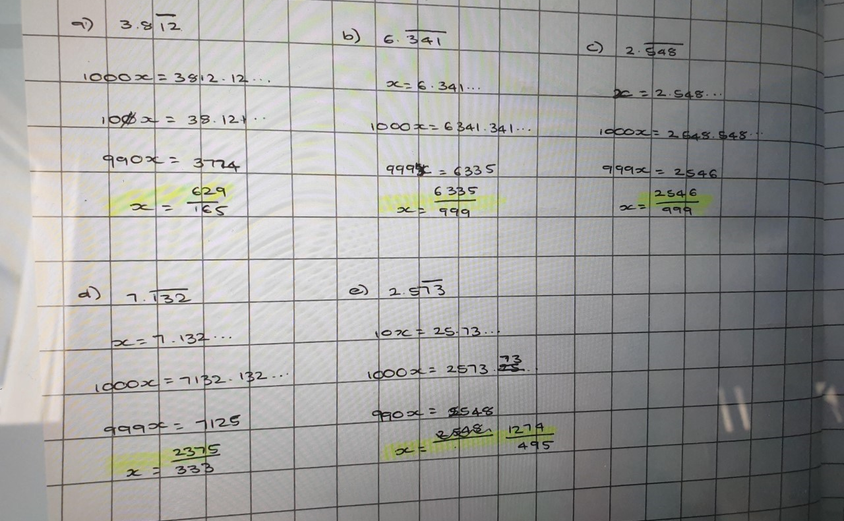 a) 3.8\overline{12}
1000x = 3812.12...
10x = 38.12...
990x = 3774
x = 629/165
b) 6.\overline{341}
x = 6.341...
1000x = 6341.341...
999x = 6335
x = 6335/999
c) 2.\overline{548}
x = 2.548...
1000x = 2548.548...
999x = 2546
x = 2546/999
d) 7.\overline{132}
x = 7.132...
1000x = 7132.132...
999x = 7125
x = 2375/333
e) 2.5\overline{73}
10x = 25.73...
1000x = 2573.73...
990x = 2548
x = 1274/495